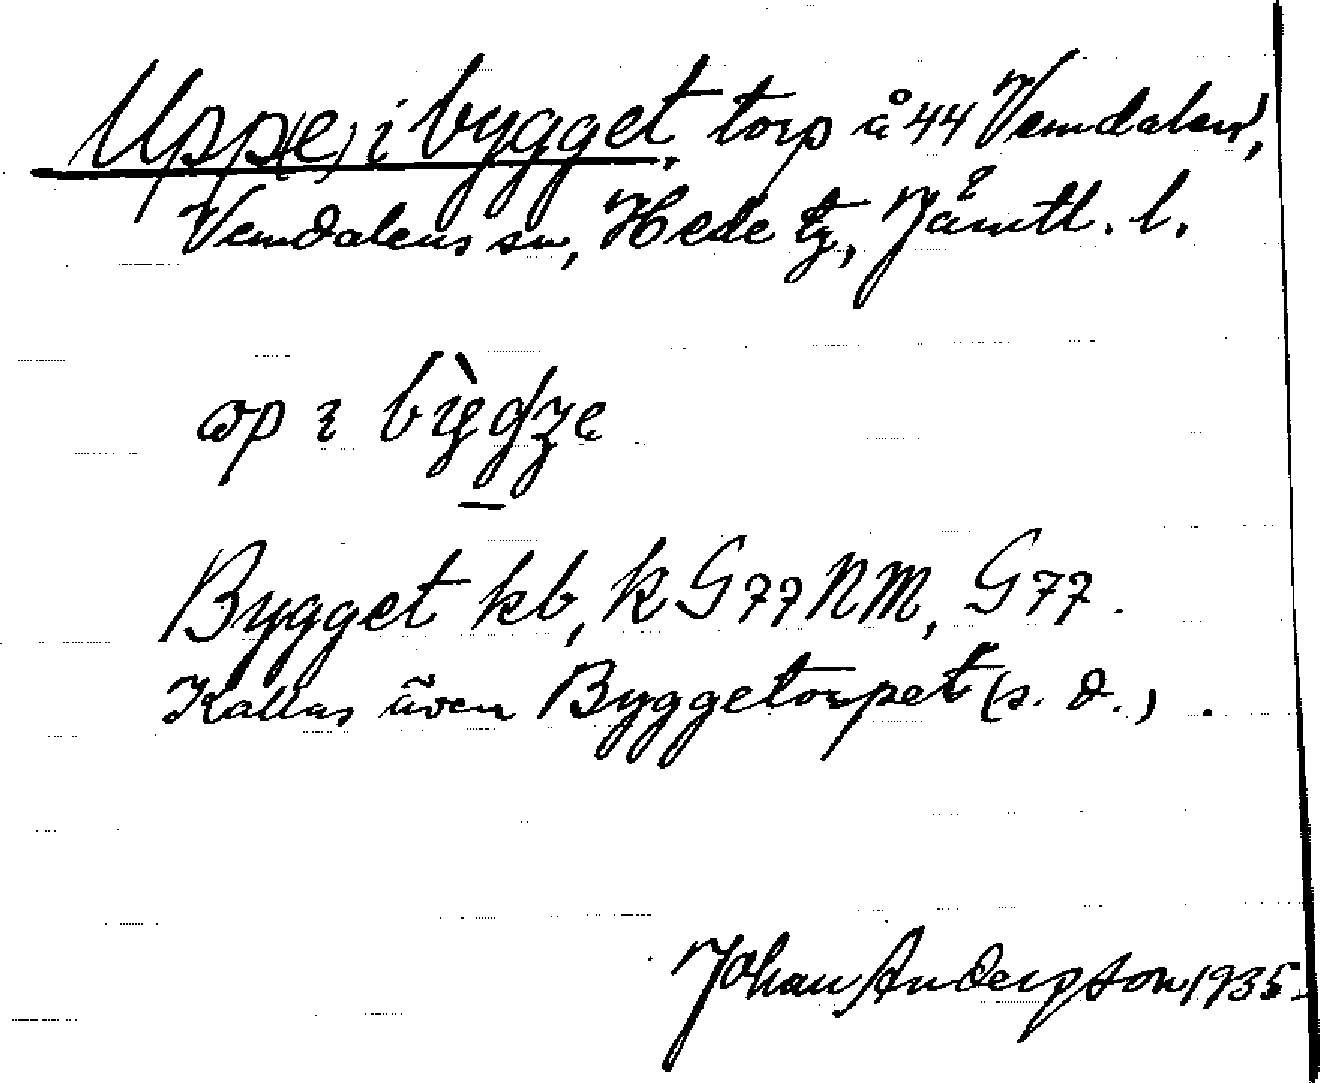 Upp(e) i bygget, torp å 44 Vemdalen,
Vemdalens sn, Hede tg, Jämtl. l.
Bygget kb, k G77NM, G77.
Kallas även Byggetorpet (s. d.) .
Johan Andersson 1935.